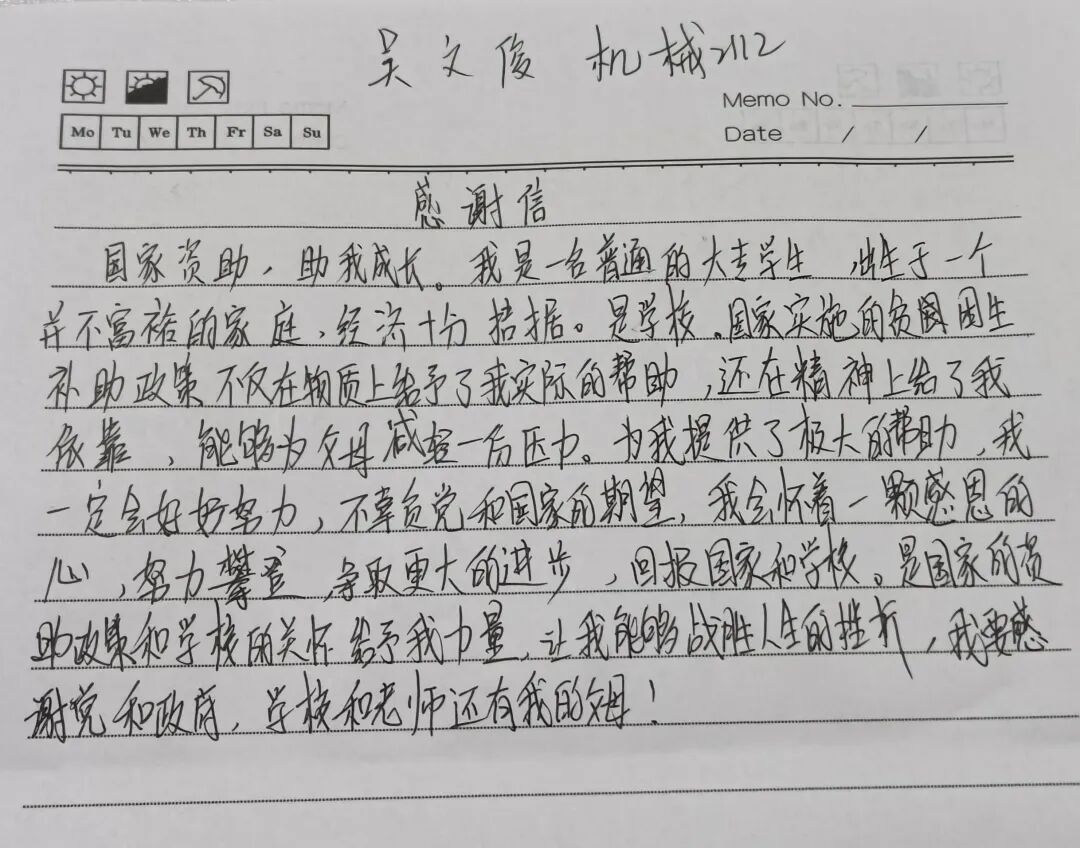 吴文俊 机械2112
Memo No.
Mo Tu We Th Fr Sa Su
Date / /
感谢信
国家资助，助我成长。我是一名普通的大专学生，出生于一个
并不富裕的家庭，经济十分拮据。是学校、国家实施的贫困生
补助政策不仅在物质上给予了我实际的帮助，还在精神上给了我
依靠，能够为父母减轻一份压力。为我提供了极大的帮助，我
一定会好好努力，不辜负党和国家的期望，我会怀着一颗感恩的
心，努力攀登，争取更大的进步，回报国家和学校。是国家的资
助政策和学校的关怀给予我力量，让我能够战胜人生的挫折，我要感
谢党和政府，学校和老师还有我的父母！